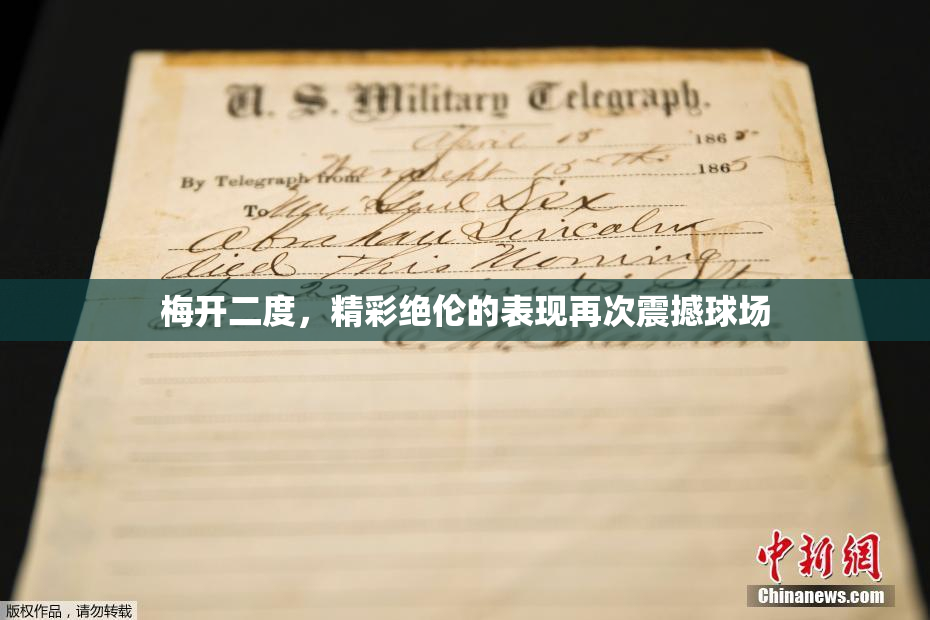 U. S. Military Telegraph.
April 15 1865
By Telegraph from War Dept 15th 1865
To Maj Genl Dix
Abraham Lincoln
died This Morning
at 22 minutes after
梅开二度，精彩绝伦的表现再次震撼球场
E. M. Stanton
中新網
Chinanews.com
版权作品，请勿转载